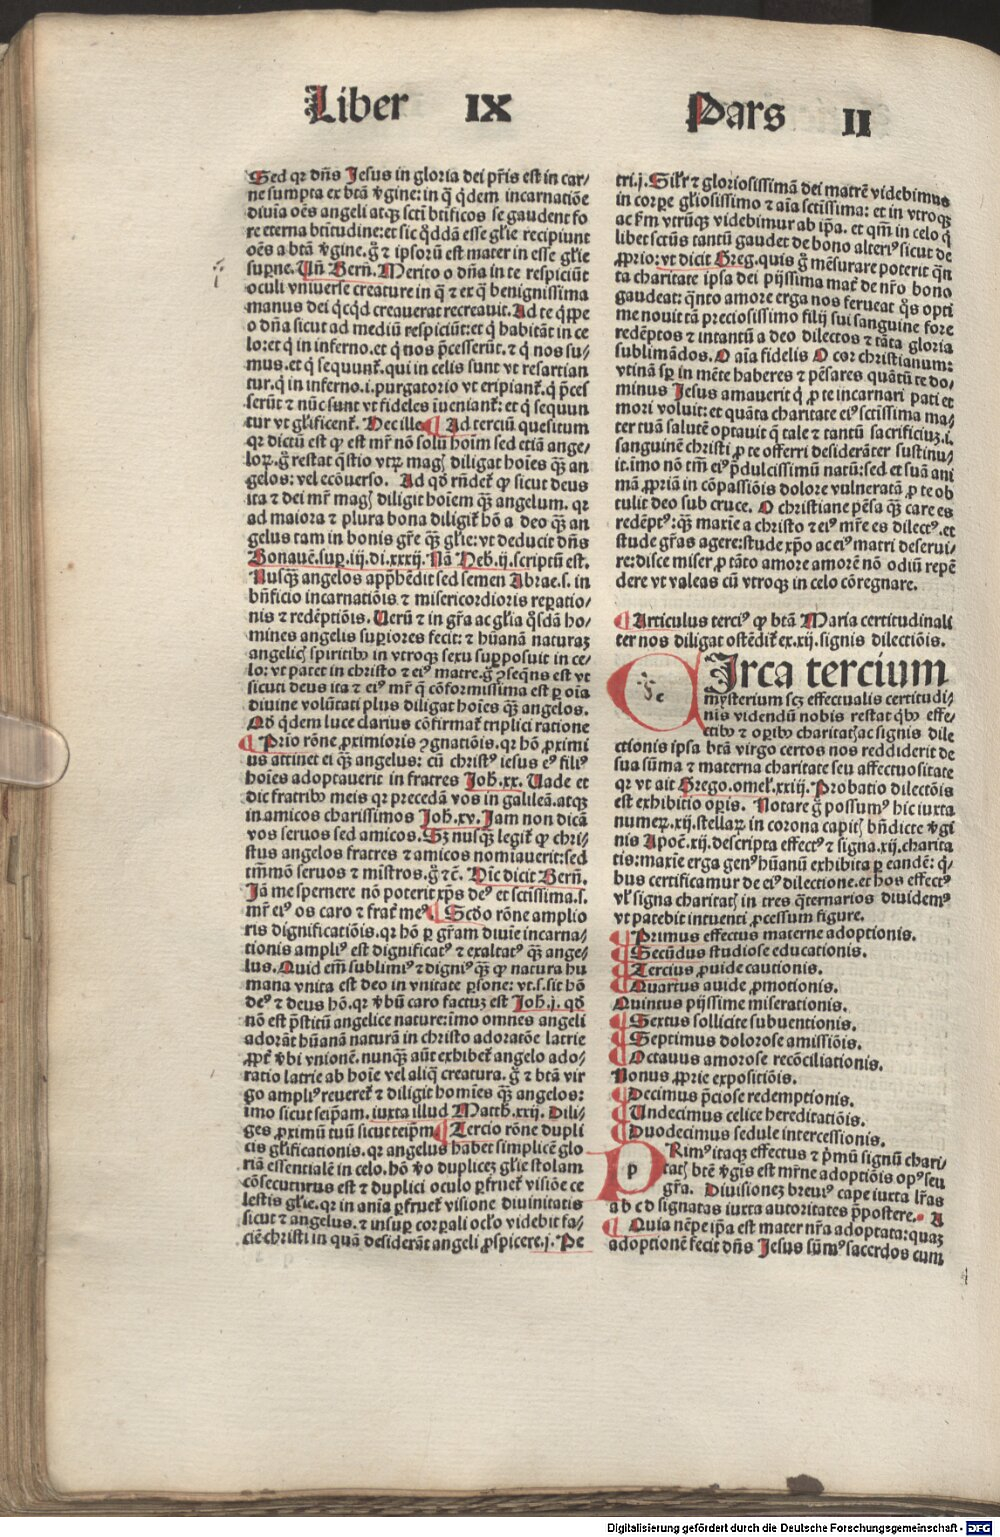 Liber IX Pars II
Sed qr dñs Jesus in gloria dei pr̃is est in car/
ne sumpta ex btã v̾gine: in q̃ q̇dem incarnatiõe
diuĩa oẽs angeli atqȝ scti btifici se gaudent fo
re eterna btitudine: et sic q̇ddã esse gl̃ie recipiunt
oẽs a btã v̾gine. g̃ ⁊ ipsorũ est mater in esse gl̃ie
sup̱ne. Uñ Bern̄. Merito o dña in te respiciũt
oculi vniuerse creature in q̃ ⁊ ex q̃ benignissima
manus dei q̇cq̇d creauerat recreauit. Ad te q̇ppe
o dña sicut ad mediũ respiciũt: et q̇ habitãt in ce
lo: et q̇ in inferno. et q̇ nos p̃cesserũt. ⁊ q̇ nos su/
mus. et q̇ sequunt̃. qui in celis sunt vt resartian
tur. q̇ in inferno .i. purgatorio vt eripiant̃. q̇ p̃ces
serũt ⁊ nũc sunt vt fideles ĩueniant̃: et q̇ sequun
tur vt gl̃ificent̃. Hec ille. ¶ Ad terciũ quesitum
qr dictũ est ꝙ est mr̃ nõ solũ hoĩm sed etiã ange/
loꝝ. g̃ restat q̃stio vtꝝ magꝭ diligat hoĩes q̃ȝ an
gelos: vel ecõuerso. Ad qḋ rñdet̃ ꝙ sicut deus
ita ⁊ dei mr̃ magꝭ diligit hoĩem q̃ȝ angelum. qr
ad maiora ⁊ plura bona diligit̃ hõ a deo q̃ȝ an
gelus tam in bonis gr̃e q̃ȝ gl̃ie: vt deducit dñs
Bonauẽ. sup̱ .iij. di. xxxij. Nã Heb. ij. scriptũ est.
Nusq̃ȝ angelos app̃hẽdit sed semen Abrae .s. in
bñficio incarnatiõis ⁊ misericordioris rep̱atio/
nis ⁊ redẽptiõis. Uerũ ⁊ in gr̃a ac gl̃ia q̇sdã ho/
mines angelis sup̱iores fecit: ⁊ hũanã naturaȝ
angelicꝭ spiritibꝰ in vtroqȝ sexu sup̱posuit in ce/
lo: vt patet in christo ⁊ eiꝰ matre. g̃ ꝯseq̃ns est vt
sicuti deus ita ⁊ eiꝰ mr̃ q̃ cõformissima est ꝑ oĩa
diuine volũtati plus diligat hoĩes q̃ȝ angelos.
Qḋ q̇dem luce clarius cõfirmat̃ triplici ratione
¶ Prio rõne ꝓximioris ꝯgnatiõis. qr hõ ꝓximi
us attinet ei q̃ȝ angelus: cũ christꝰ iesus eꝰ filiꝰ
hoĩes adoptauerit in fratres Joh. xx. Uade et
dic fratribꝰ meis qr precedã vos in galileã. atqȝ
in amicos charissimos Joh. xv. Jam non dicã
vos seruos sed amicos. Sȝ nusq̃ȝ legit̃ ꝙ chri/
stus angelos fratres ⁊ amicos nomĩauerit: sed
tm̃mõ seruos ⁊ mĩstros. g̃ ⁊c̃. Hĩc dicit Bern̄.
Jã me spernere nõ poterit xp̃s deꝰ et sctissima .s.
mr̃ eiꝰ os caro ⁊ frat̃ meꝰ. ¶ Scḋo rõne amplio
ris dignificatiõis. qr hõ ꝑ gr̃am diuĩe incarna/
tionis ampliꝰ est dignificatꝰ ⁊ exaltatꝰ q̃ȝ ange/
lus. Quid em̃ sublimiꝰ ⁊ digniꝰ q̃ȝ ꝙ natura hu
mana vnita est deo in vnitate ꝑsone: vt .s. sit hõ
deꝰ ⁊ deus hõ. qr v̾bũ caro factuȝ est Joh. j. qḋ
nõ est p̃stitũ angelice nature: ĩmo omnes angeli
adorãt hũanã naturã in christo adoratõe latrie
ꝓpt̃ v̾bi vnionẽ. nunq̃ȝ aũt exhibet̃ angelo ado/
ratio latrie ab hoĩe vel aliq̃ creatura. g̃ ⁊ btã vir
go ampliꝰ reueret̃ ⁊ diligit homĩes q̃ȝ angelos:
imo sicut seip̃am. iuxta illud Matth. xxij. Dili/
ges ꝓximũ tuũ sicut teip̃m. ¶ Tercio rõne dupli
cis gl̃ificationis. qr angelus habet simplicẽ glo
riã essentialẽ in celo. hõ v̾o dupliceȝ gl̃ie stolam
cõsecuturus est ⁊ duplici oculo ꝑfruet̃ visiõe ce
lestis gl̃ie. qr in anĩa ꝑfruet̃ visione diuinitatis
sicut ⁊ angelus. ⁊ insuꝑ corꝑali oclo videbit fa/
ciẽ christi in quã desiderãt angeli ꝓspicere .j. Pe
tri. j. Sil̃r ⁊ gloriosissimã dei matrẽ videbimus
in corꝑe gl̃iosissimo ⁊ aĩa sctissima: et in vtroqȝ
ac f̃m vtrũqȝ videbimur ab ip̃a. et qm̃ in celo q̇
libet sctũs tantũ gaudet de bono alteriꝰ sicut de
ꝓprio: vt dicit Greg. quis g̃ mẽsurare poterit q̃n
ta charitate ipsa dei pijssima mat̃ de nr̃o bono
gaudeat: q̃nto amore erga nos ferueat q̃s opti
me nouit tã preciosissimo filij sui sanguine fore
redẽptos ⁊ intantũ a deo dilectos ⁊ tãta gloria
sublimãdos. O aĩa fidelis O cor christianum:
vtinã sꝑ in mẽte haberes ⁊ pẽsares quãtũ te do/
minus Jesus amauerit q̇ ꝓ te incarnari pati et
mori voluit: et quãta charitate eiꝰ sctissima ma/
ter tuã salutẽ optauit q̃ tale ⁊ tantũ sacrificiuȝ .i.
sanguinẽ christi ꝓ te offerri desiderãter sustinu/
it. imo nõ tm̃ eiꝰ p̃dulcissimũ natũ: sed et suã ani
mã ꝓpriã in cõpassiõis dolore vulneratã ꝓ te ob
tulit deo sub cruce. O christiane pẽsa q̃ȝ care es
redẽptꝰ: q̃ȝ maxĩe a christo ⁊ eiꝰ mr̃e es dilectꝰ. et
stude gr̃as agere: stude xp̃o ac eiꝰ matri deserui/
re: disce miser ꝓ tãto amore amorẽ nõ odiũ repẽ
dere vt valeas cũ vtroqȝ in celo cõregnare.
¶ Articulus terciꝰ ꝙ btã Maria certitudinali
ter nos diligat ostẽdit̃ ex .xij. signis dilectiõis.
CIrca tercium
mysterium scȝ effectualis certitudi/
nis videndũ nobis restat q̇bꝰ effe/
ctibꝰ ⁊ oꝑibꝰ charitatꝭ ac signis dile
ctionis ipsa btã virgo certos nos reddiderit de
sua sũma ⁊ materna charitate seu affectuositate
qr vt ait Grego. omel̃. xxiij. Probatio dilectõis
est exhibitio oꝑis. Notare g̃ possumꝰ hic iuxta
numeꝝ .xij. stellaꝝ in corona capitꝭ bñdicte v̾gi
nis Apoc̃. xij. descripta effectꝰ ⁊ signa .xij. charita
tis: maxĩe erga genꝰ hũanũ exhibita ꝑ eandẽ: q̇/
bus certificamur de eiꝰ dilectione. et hos effectꝰ
vl̃ signa charitatꝭ in tres q̃ternarios diuidemꝰ
vt patebit intuenti ꝓcessum figure.
¶ Primus effectus materne adoptionis.
¶ Secũdus studiose educationis.
¶ Tercius ꝓuide cautionis.
¶ Quartus auide ꝓmotionis.
Quintus pijssime miserationis.
¶ Sextus sollicite subuentionis.
¶ Septimus dolorose amissiõis.
¶ Octauus amorose recõciliationis.
Nonus ꝓprie expositiõis.
¶ Decimus p̃ciose redemptionis.
¶ Undecimus celice hereditatiõis.
¶ Duodecimus sedule intercessionis.
PRimꝰ itaqȝ effectus ⁊ p̃mũ signũ chari/
tatꝭ btẽ v̾gis est mr̃ne adoptiõis opꝰ seu
gr̃a. Divisionez breuiꝰ capẽ iuxta lr̃as
a b c d signatas iuxta autoritates p̃postere. A
¶ Quia nẽpe ip̃a est mater nr̃a adoptata: quaȝ
adoptionẽ fecit dñs Jesus sũmꝰ sacerdos cum
Digitalisierung gefördert durch die Deutsche Forschungsgemeinschaft - DFG